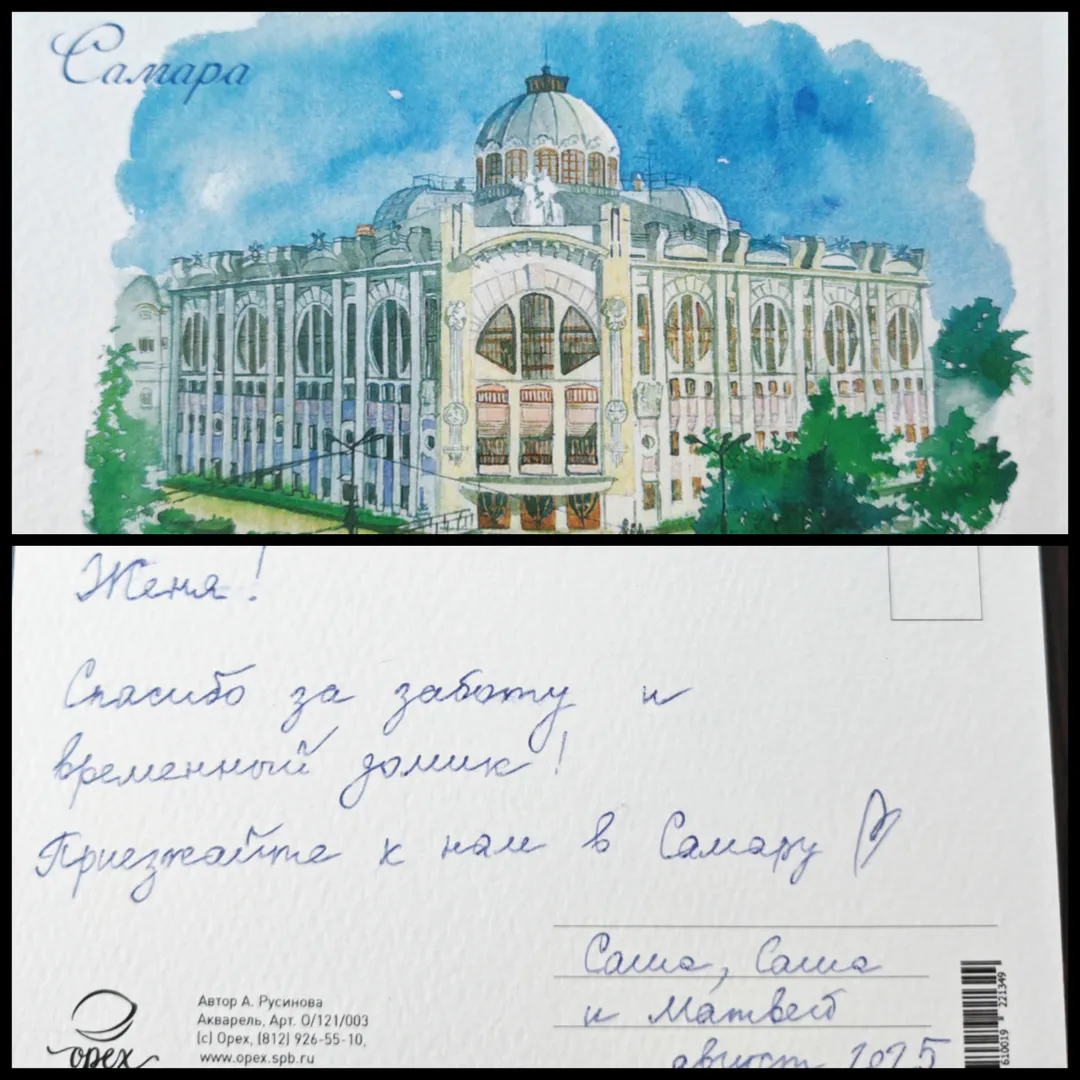 Самара
Женя!
Спасибо за заботу и
временный домик!
Приезжайте к нам в Самару
Саша, Саша
и Матвей
август 2025
Автор А. Русинова
Акварель, Арт. О/121/003
(с) Орех, (812) 926-55-10,
www.opex.spb.ru
орех
610019 221349